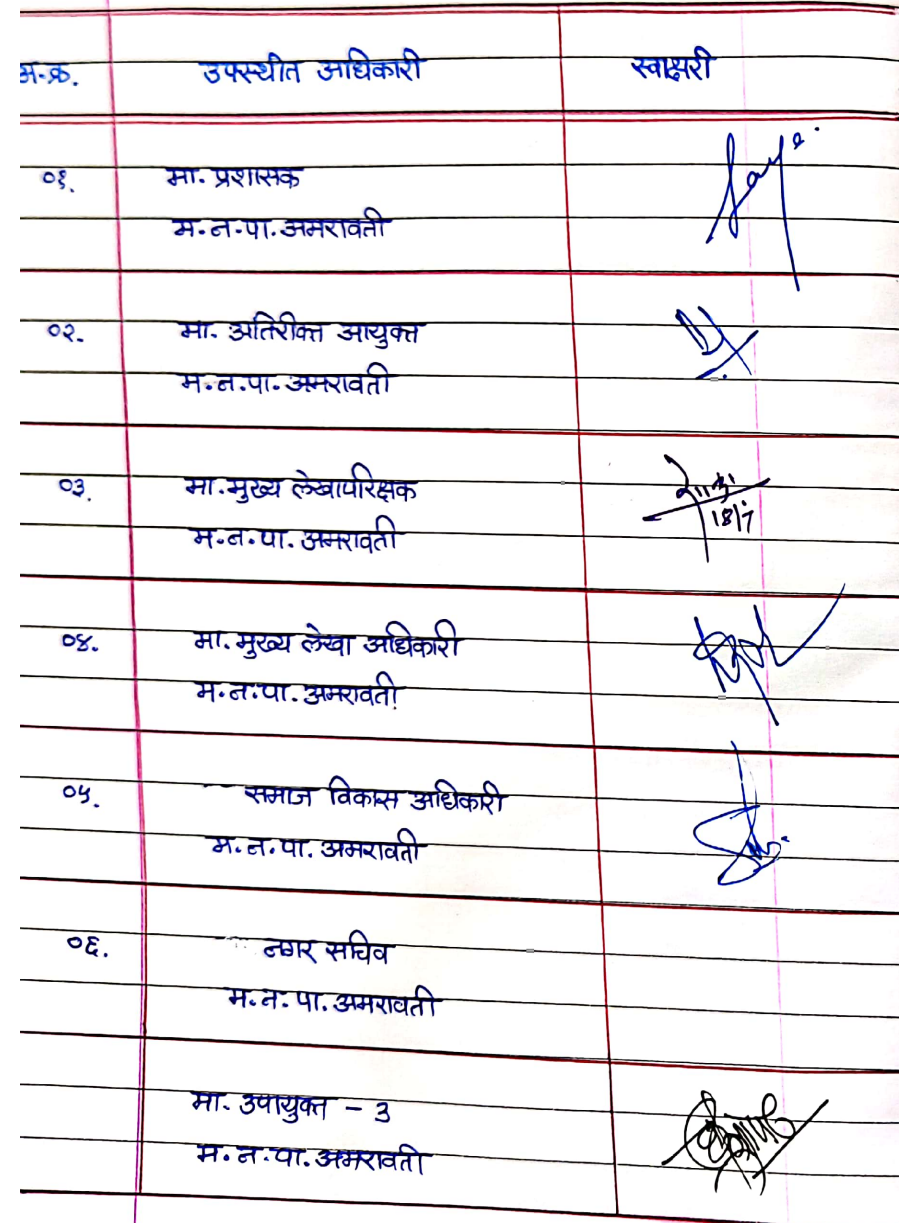 अ.क्र. उपस्थीत अधिकारी स्वाक्षरी
०१. मा. प्रशासक
म.न.पा.अमरावती
०२. मा. अतिरीक्त आयुक्त
म.न.पा.अमरावती
०३. मा.मुख्य लेखापरिक्षक
म.न.पा. अमरावती
18/7
०४. मा. मुख्य लेखा अधिकारी
म.न.पा. अमरावती
०५. समाज विकास अधिकारी
म.न.पा. अमरावती
०६. नगर सचिव
म.न.पा.अमरावती
मा. उपायुक्त - 3
म.न.पा.अमरावती